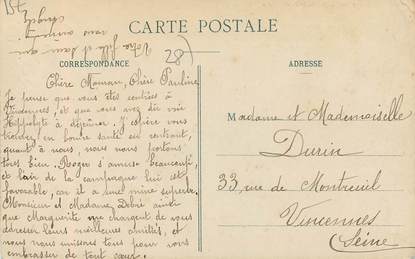 CARTE POSTALE
CORRESPONDANCE
ADRESSE
28
Votre fille et sœur qui
vous aime
Chère Maman, Chère Pauline
Je pense que vous êtes rentrées à
Vincennes, et que vous avez dû voir
Hippolyte à déjeuner. J'espère vous
trouver en bonne santé en rentrant,
quant à nous, nous nous portons
tous bien. Roger s'amuse beaucoup,
et l'air de la campagne lui est
favorable, car il a une mine superbe.
Monsieur et Madame Debri ainsi
que Marguerite me chargent de vous
adresser leurs meilleures amitiés, et
nous nous unissons tous pour vous
embrasser de tout cœur.
Madame et Mademoiselle
Durin
33, rue de Montreuil
Vincennes
(Seine)